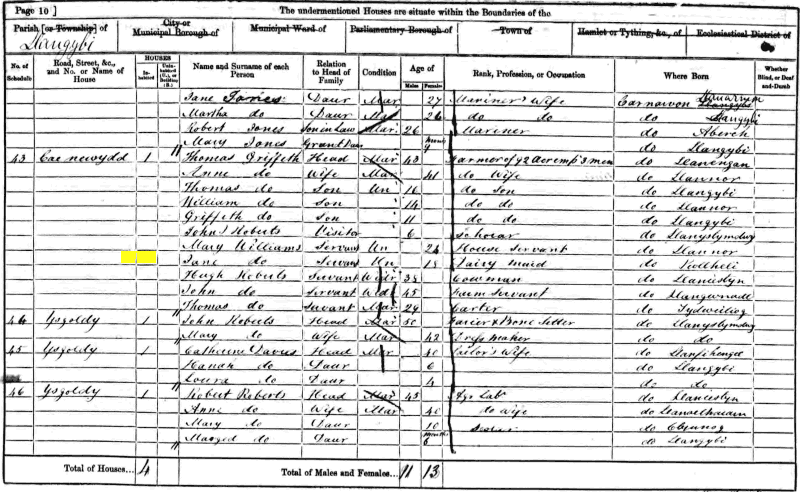 Page 10 ] The undermentioned Houses are situate within the Boundaries of the
Parish [or Township] of Llangybi City or Municipal Borough of Municipal Ward of Parliamentary Borough of Town of Hamlet or Tything, &c., of Ecclesiastical District of
No. of Schedule Road, Street, &c., and No. or Name of House HOUSES Inhabited Uninhabited (U.), or Building (B.) Name and Surname of each Person Relation to Head of Family Condition Age of Males Females Rank, Profession, or Occupation Where Born Whether Blind, or Deaf-and-Dumb
Jane Jones Daur Mar 27 Mariner's Wife Carnarvon
Martha do Daur Mar 26 do do do Llangybi
Robert Jones Son in Law Mar 26 Mariner do Aberch
Mary Jones Grand Daur 9 do Llangybi
43 Cae newydd 1 Thomas Griffeth Head Mar 43 Farmer of 92 Acr emp 3 men do Llanengan
Anne do Wife Mar 41 do Wife do Llannor
Thomas do Son Un 16 do Son do Llangybi
William do Son 14 do do do Llannor
Griffeth do Son 11 do do do Llangybi
John Roberts Visitor 6 Scholar do Llanystymdwy
Mary Williams Servant Un 24 House Servant do Llannor
Jane do Servant Un 18 Dairy maid do
Hugh Roberts Servant Widr 38 Cowman do
John do Servant Widr 45 Farm Servant do
Thomas do Servant Mar 29 Carter do
44 Ysgoldy 1 John Roberts Head Mar 50 Farier & Bone Setter do Llanystymdwy
Mary do Wife Mar 42 Dress maker do do
45 Ysgoldy 1 Catherine Davies Head Mar 40 Sailor's Wife do
Hanah do Daur 6 do Llangybi
Loura do Daur 4 do do
46 Ysgoldy 1 Robert Roberts Head Mar 45 Ag Lab do
Anne do Wife Mar 40 do wife do
Mary do Daur 10 do Clynnog
Marged do Daur 6 do Llangybi
Total of Houses... 4 Total of Males and Females... 11 13